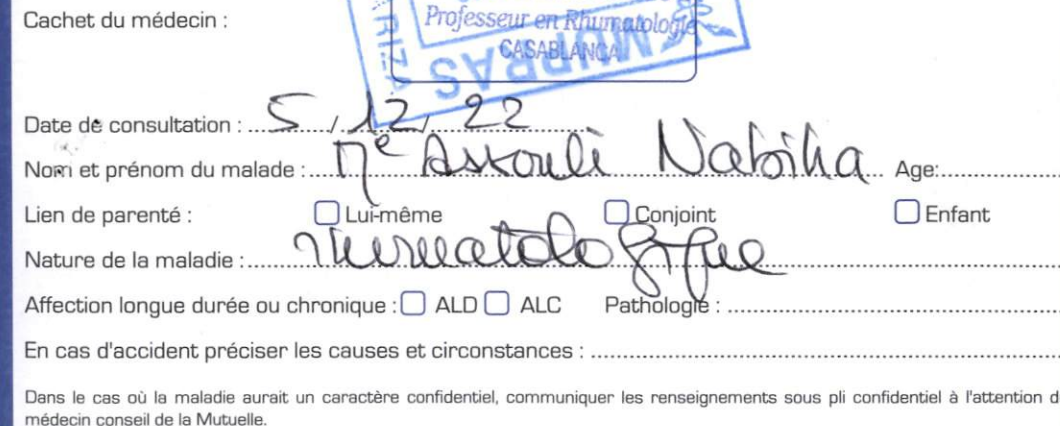 Cachet du médecin :
Professeur en Rhumatologie
CASABLANCA
MUPRAS
Date de consultation : 5 / 12 / 22
Nom et prénom du malade : Me Askouli Nabiha Age:
Lien de parenté : Lui-même Conjoint Enfant
Nature de la maladie : rhumatologique
Affection longue durée ou chronique : ALD ALC Pathologie :
En cas d'accident préciser les causes et circonstances :
Dans le cas où la maladie aurait un caractère confidentiel, communiquer les renseignements sous pli confidentiel à l'attention
médecin conseil de la Mutuelle.